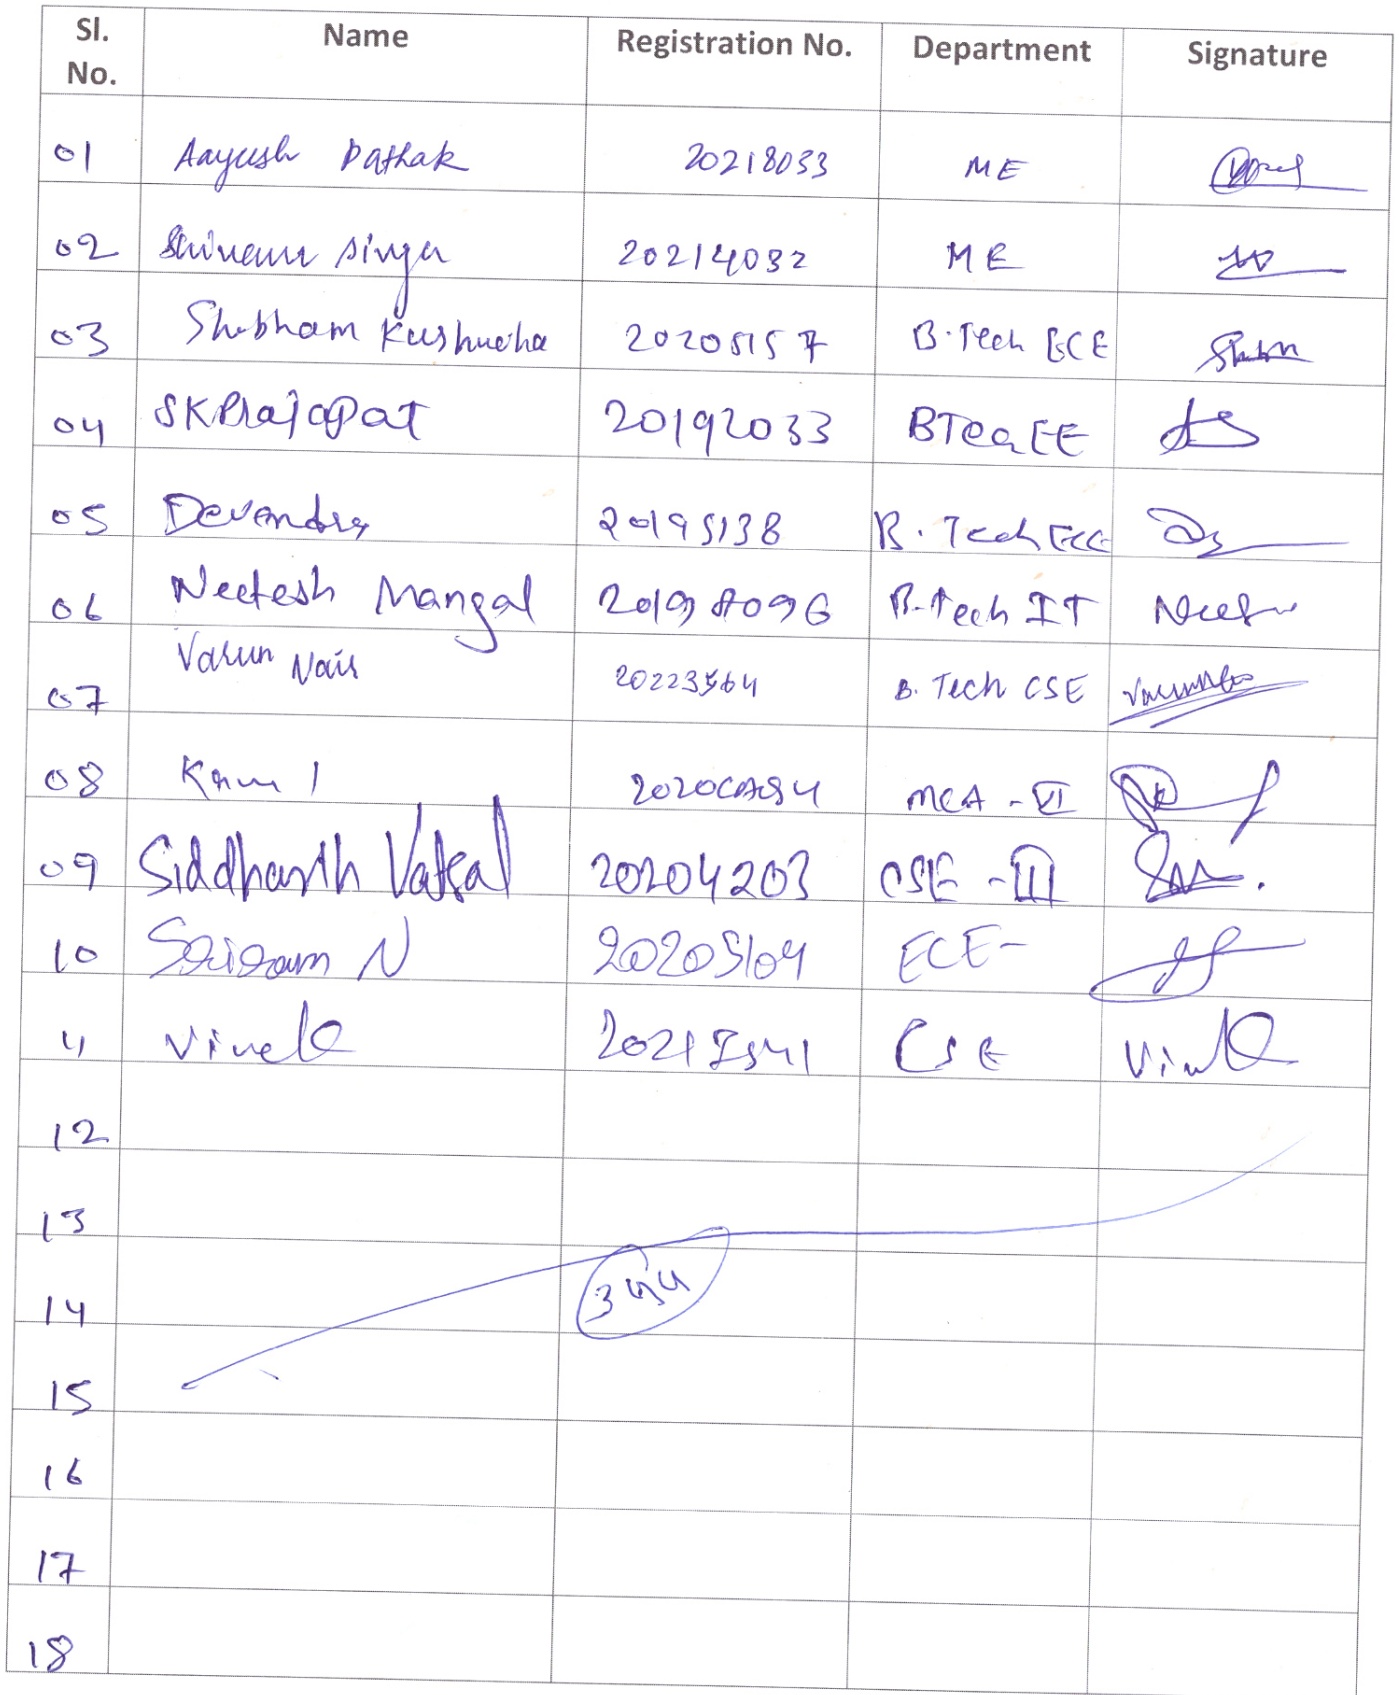 Sl. No. Name Registration No. Department Signature
01 Aayush Pathak 20218033 ME
02 Shivam Singh 20214032 ME
03 Shubham Kushwaha 20205157 B.Tech ECE
04 SKPrajapat 20192033 BTech EE
05 Devendra 20195138 B.Tech ECE
06 Neetesh Mangal 20198096 B.Tech IT
07 Varun Nair B.Tech CSE
08 MCA - VI
09 Siddhanth Vatsal 20204203 CSE - III
10 Sriram N 20205104 ECE-
11 Vivek CSE Vivek
12
13
14
15
16
17
18